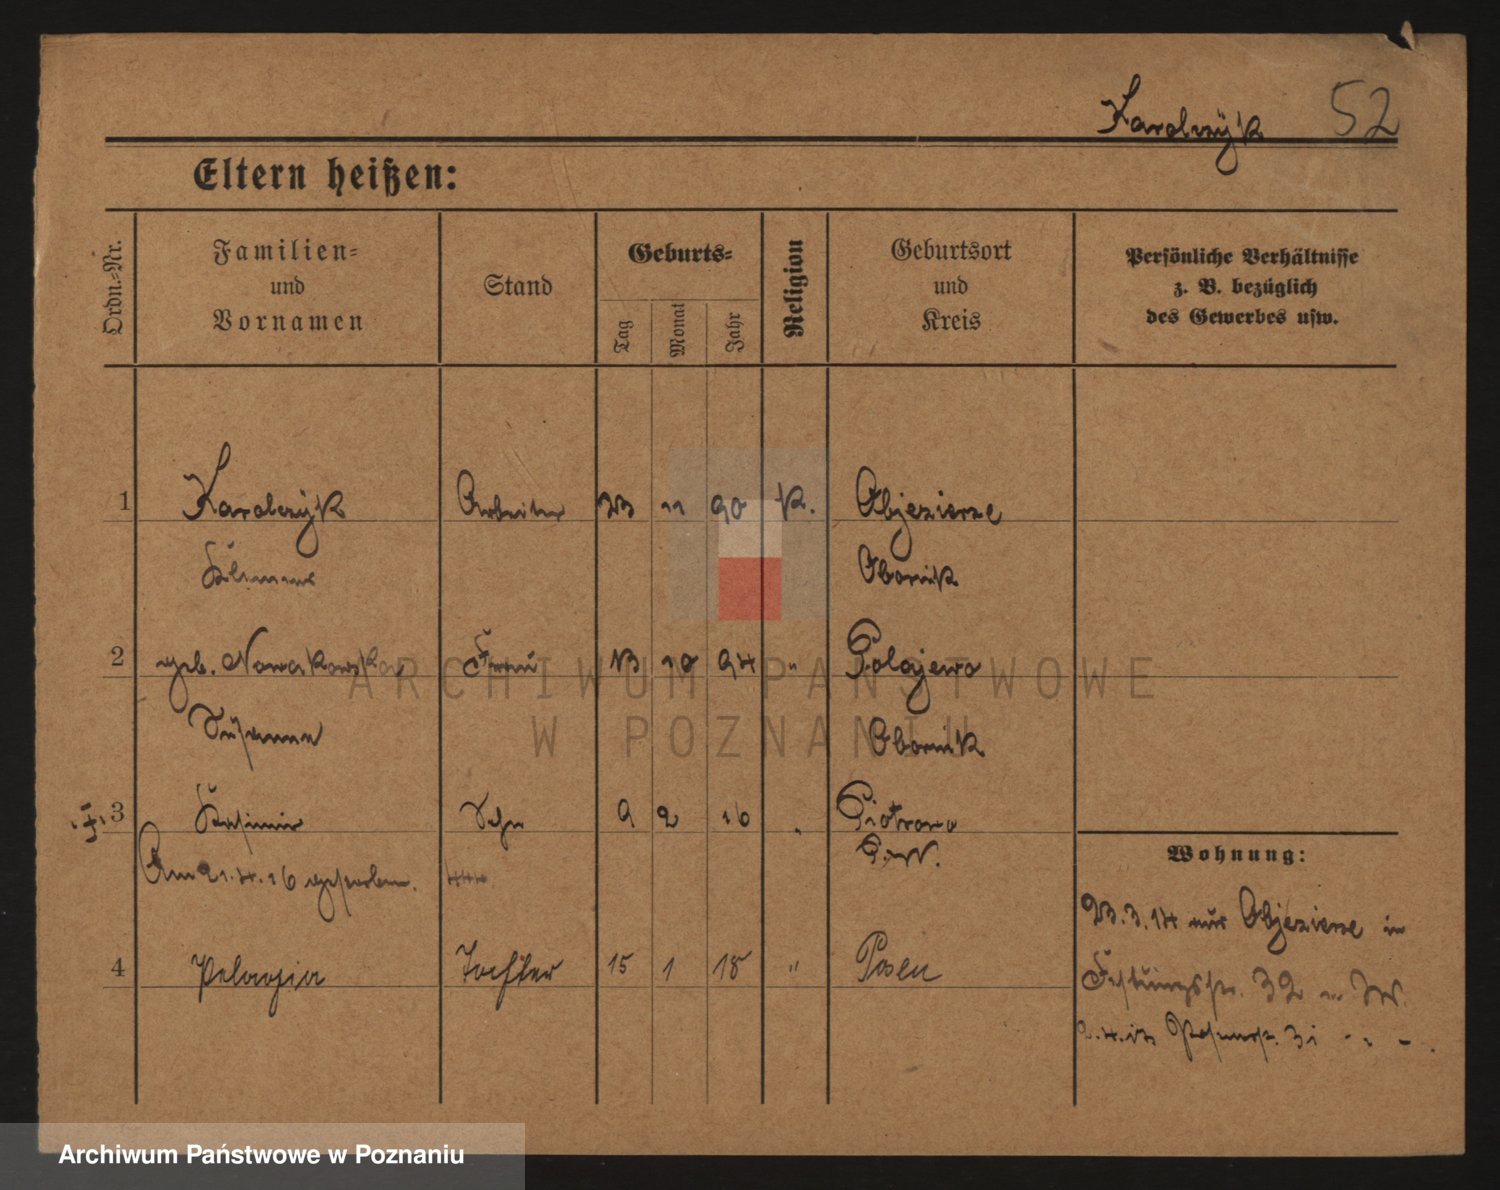 Karolczÿk 52
Eltern heißen:
Ordn.-Nr.
Familien-
und
Vornamen
Stand
Geburts-
Tag
Monat
Jahr
Religion
Geburtsort
und
Kreis
Persönliche Verhältnisse
z. B. bezüglich
des Gewerbes usw.
1 Karolczÿk Arbeiter 23 11 90 K. Objezierze
Klemens Obornik
2 geb. Nowakowska Frau 13 10 94 " Polajewo
Susanna Obornik
3 Kasimir Sohn 9 2 16 " Piotrowo
Am 21.4.16 gestorben. P.W.
4 Pelagia Tochter 15 1 18 " Posen
Wohnung:
23.3.14 aus Objezierze in
Festungsstr. 32
ARCHIWUM PAŃSTWOWE
W POZNANIU
Archiwum Państwowe w Poznaniu